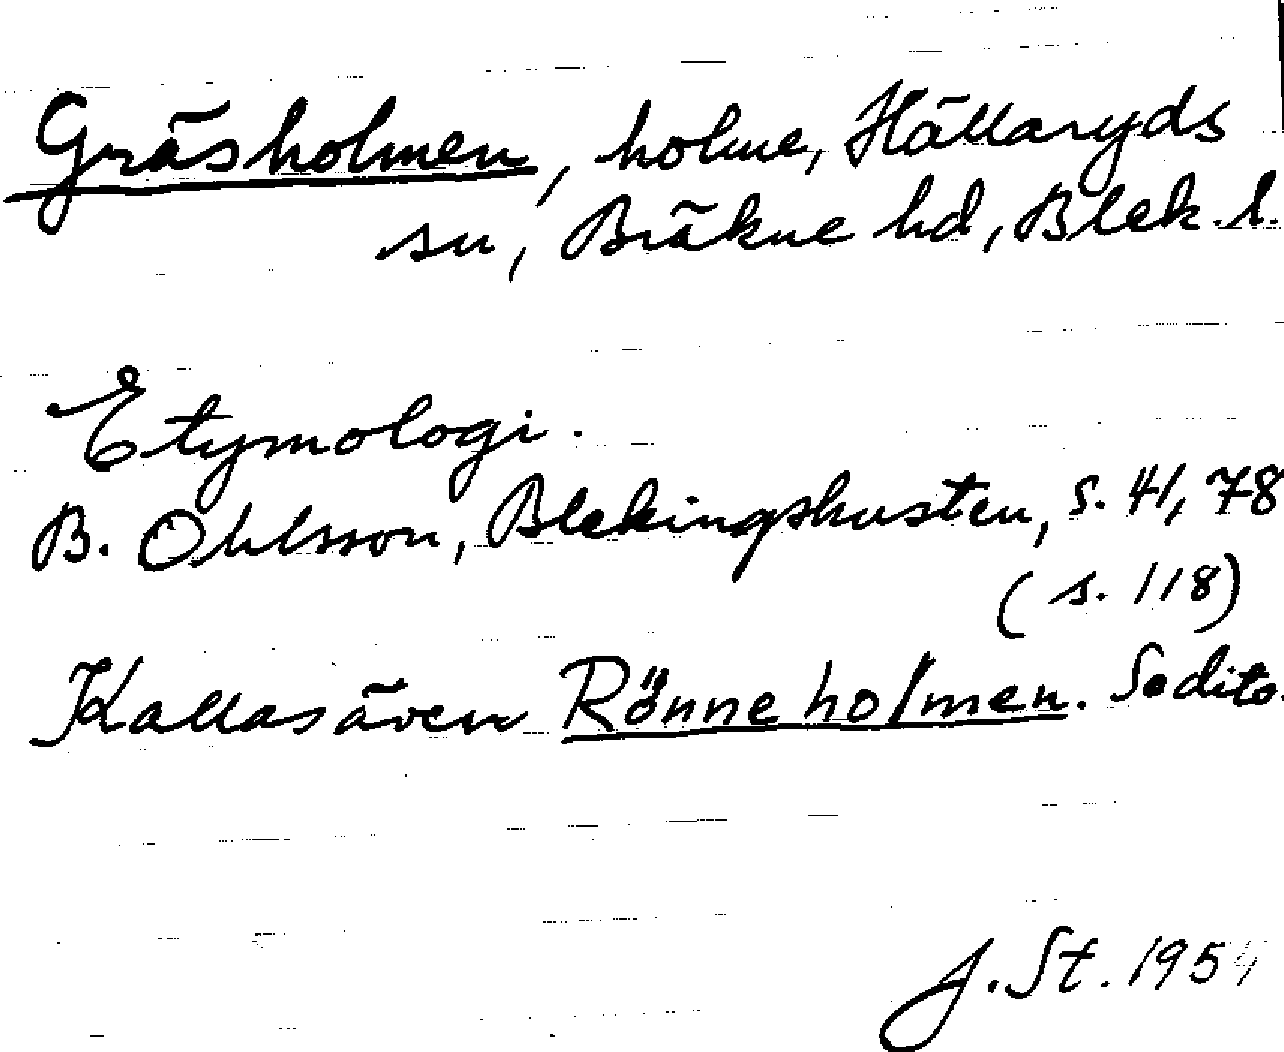 Gräsholmen, holme, Hällaryds
sn, Bräkne hd, Blek. l.
Etymologi.
B. Ohlsson, Blekingskusten, s. 41, 78
(s. 118)
Kallas även Rönneholmen. Se dito.
J. St. 1954